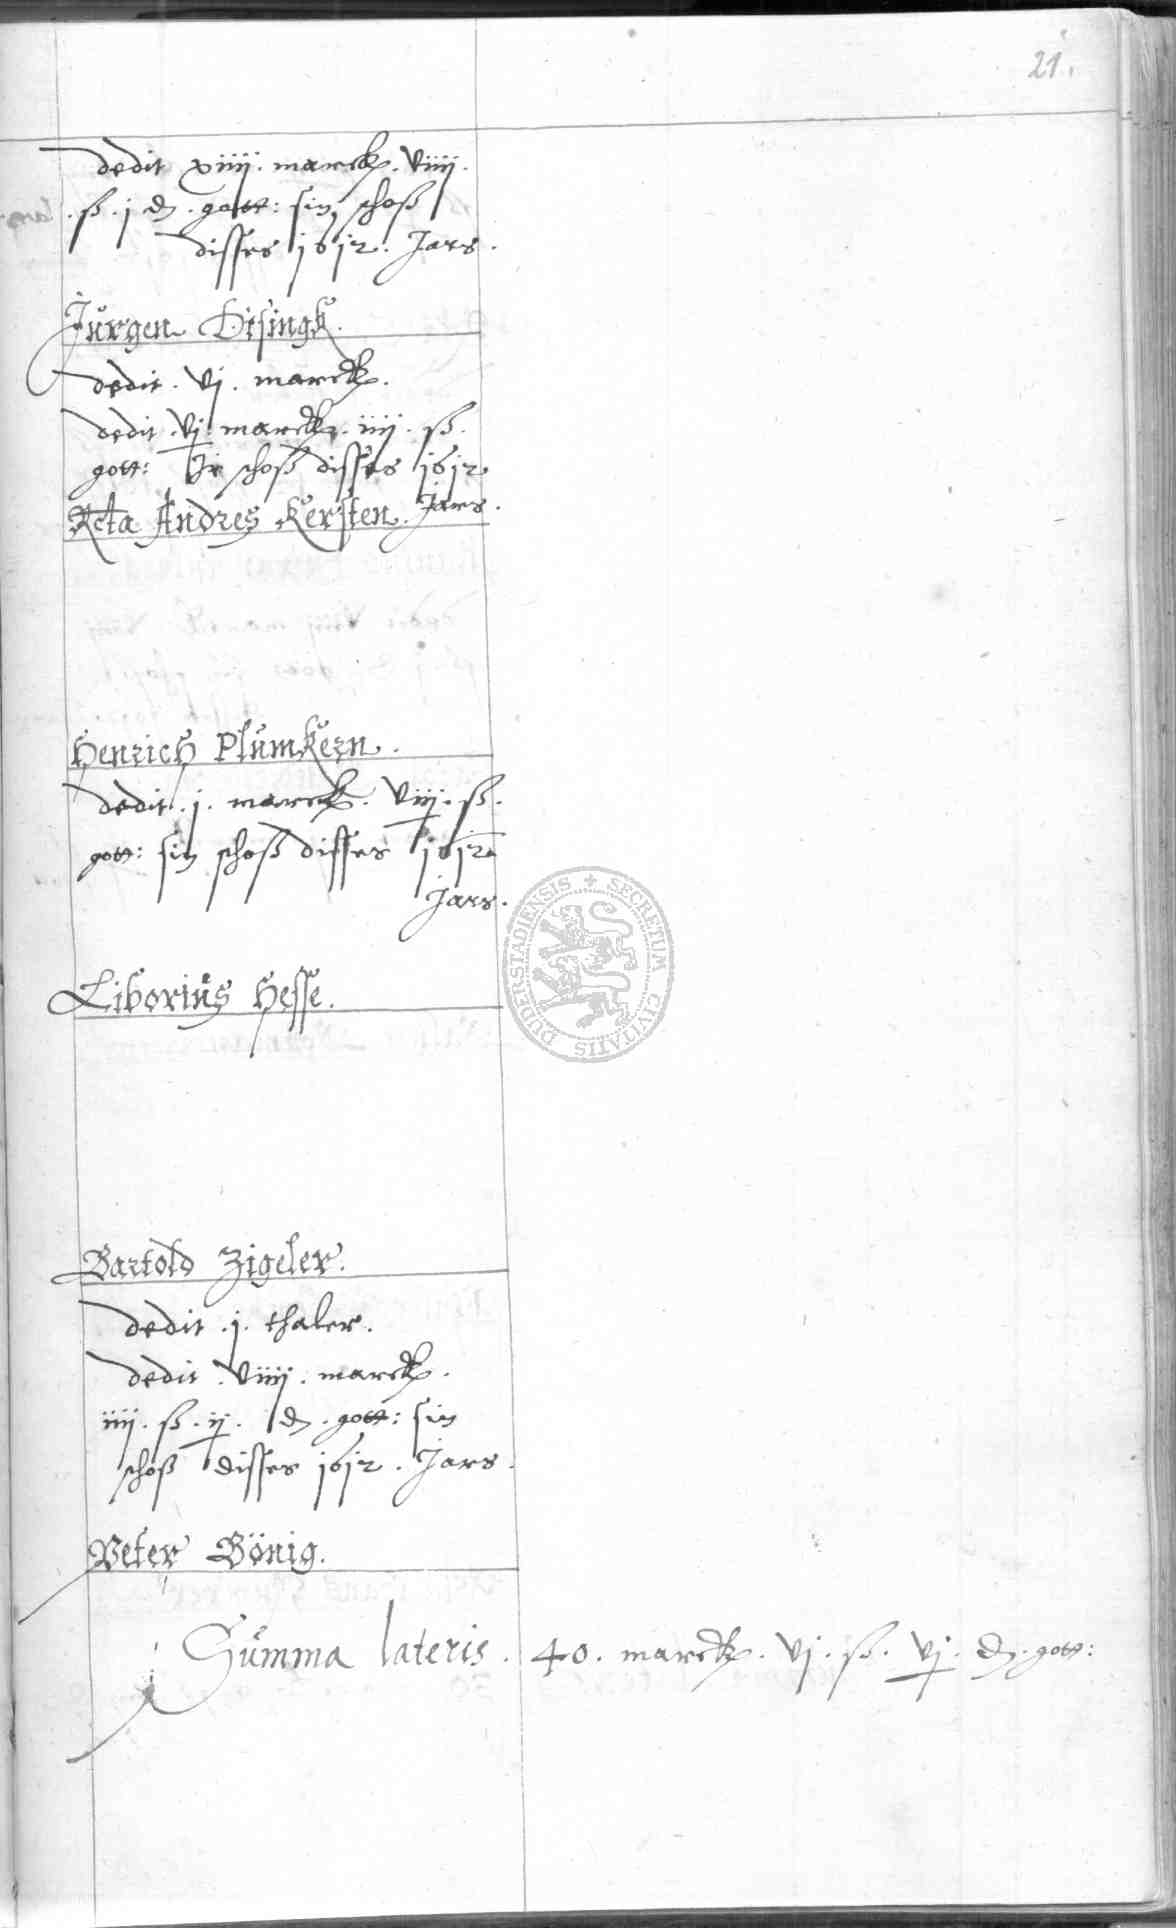 21.
dedit xiiij. marck. viiij.
. ß . j d . gott: sin schoß
disses 1612. Jars.
Jürgen Disingk.
dedit . vj . marck.
dedit . vj . marck . iiij . ß .
gott: Ir schoß disses 1612
Jars.
Rcta Andres Kersten.
Henrich Plümkern.
dedit . j . marck . viij . ß .
gott: sin schoß disses 1612
Jars.
Liborius Hesse.
Bartold Zigeler.
dedit . j . thaler.
dedit . viiij . marck .
iiij . ß . ij . d . gott: sin
schoß disses 1612 . Jars.
Peter Bönig.
Summa lateris . 40 . marck . vj . ß . vj . d . gott:
SECRETUM CIVITATIS DUDERSTADIENSIS